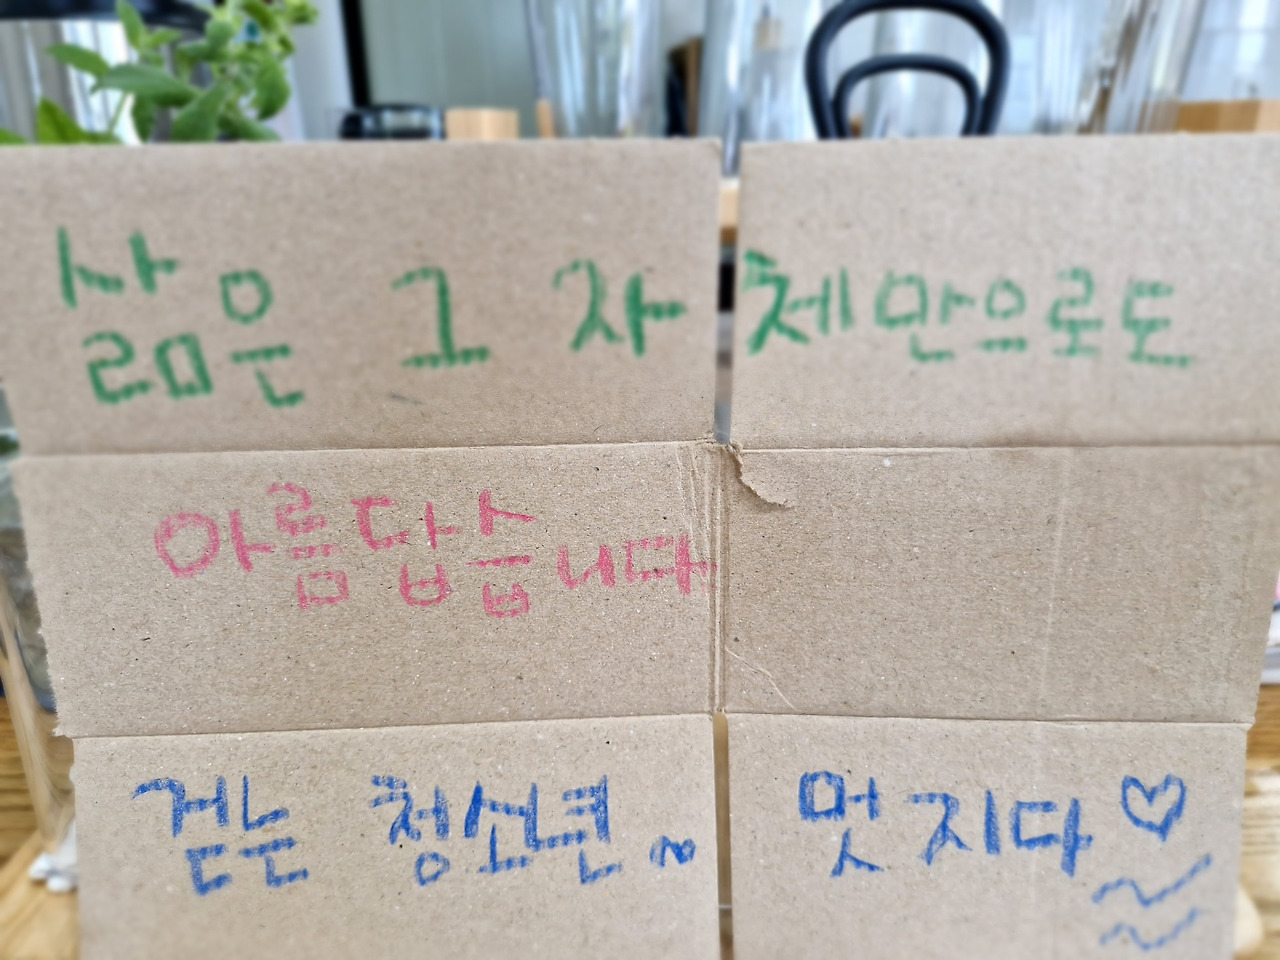 삶은 그 자체만으로도
아름답습니다
걷는 청소년~ 멋지다♡